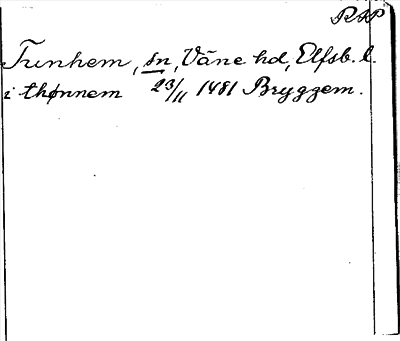 RAP
Tunhem, sn, Väne hd, Elfsb. l.
i thønnem 23/11 1481 Bryggem.